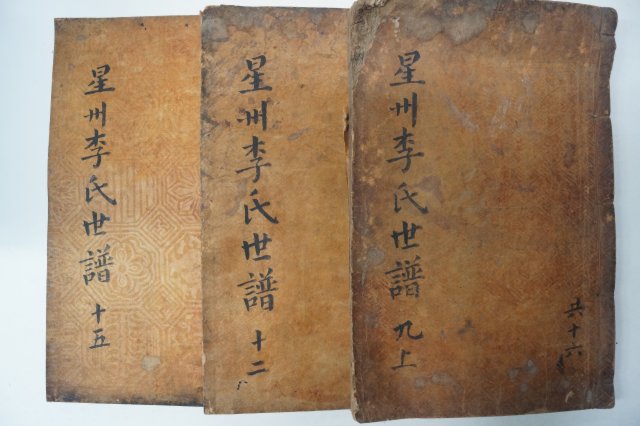 星州李氏世譜 十五
星州李氏世譜 十二
星州李氏世譜 九上
共十六